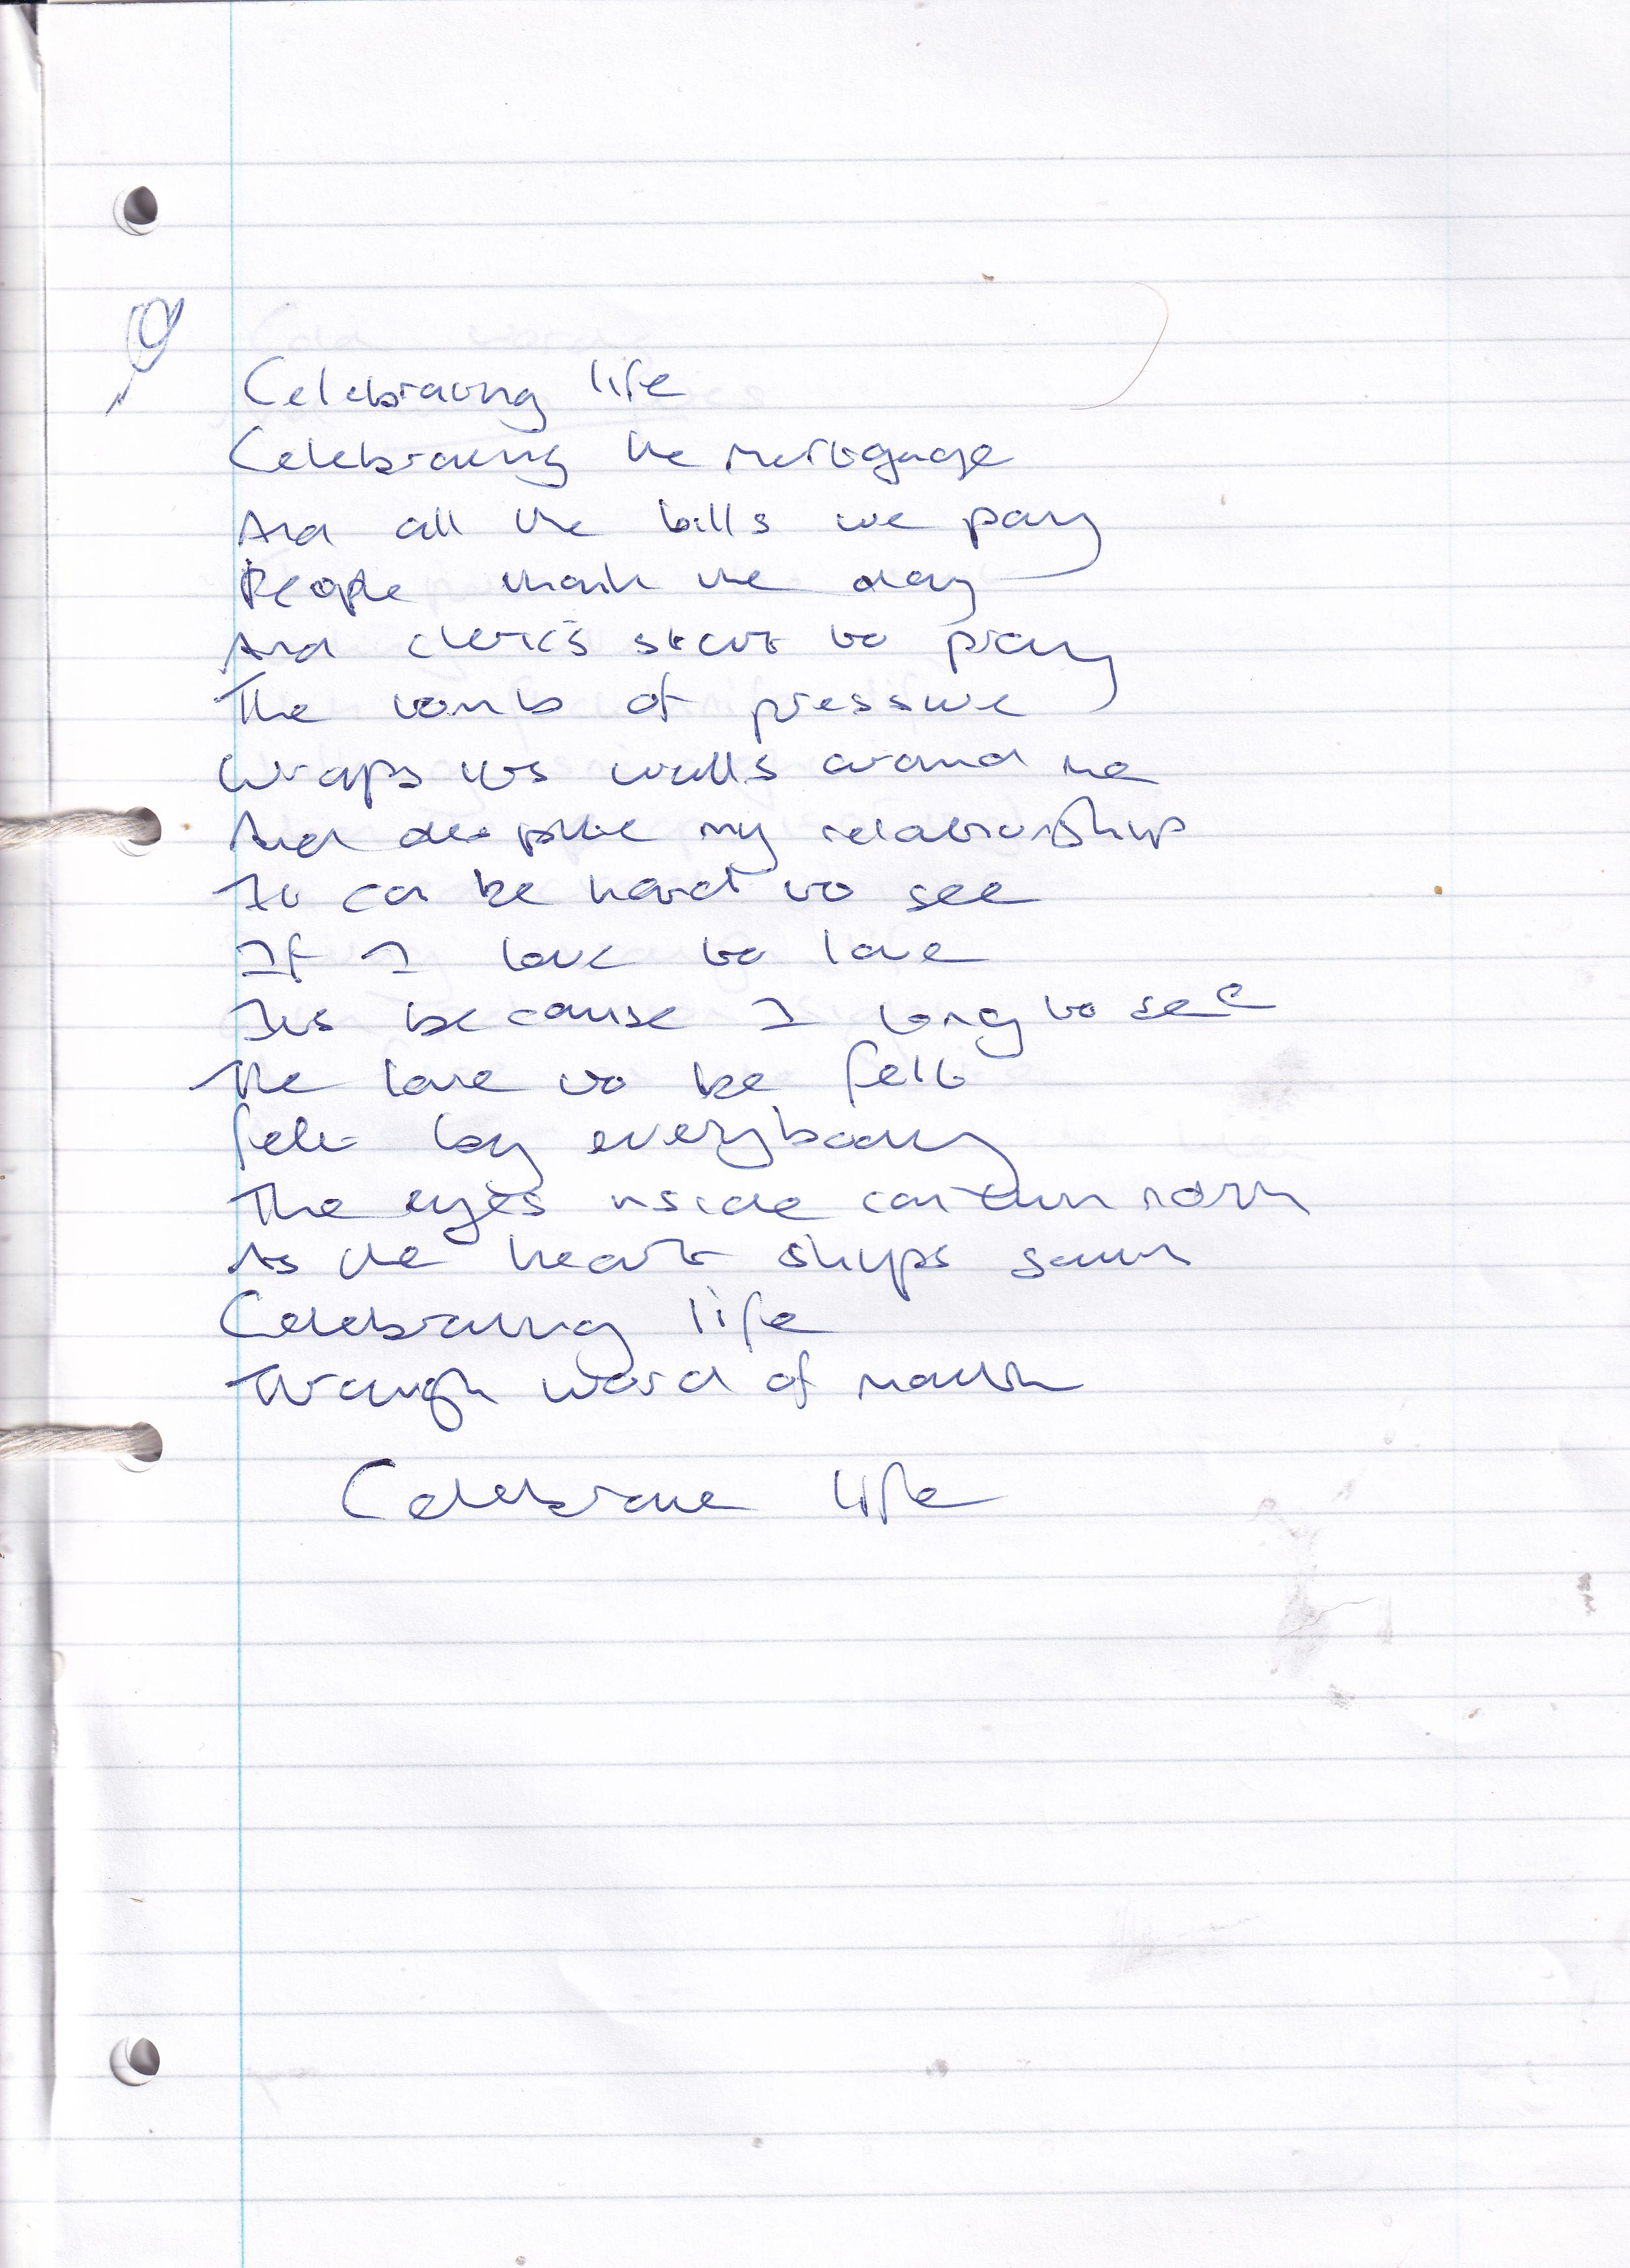 Celebrating life
Celebrating the mortguage
And all the bills we pay
People mark the day
And cleric's start to pray
The tomb of pressure
Wraps its walls around me
And despite my relationship
It can be hard to see
If I love to love
Its because I long to see
The love to be felt
felt by everybody
The eyes inside can turn north
As the heart skips south
Celebrating life
Through word of mouth
Celebrate life